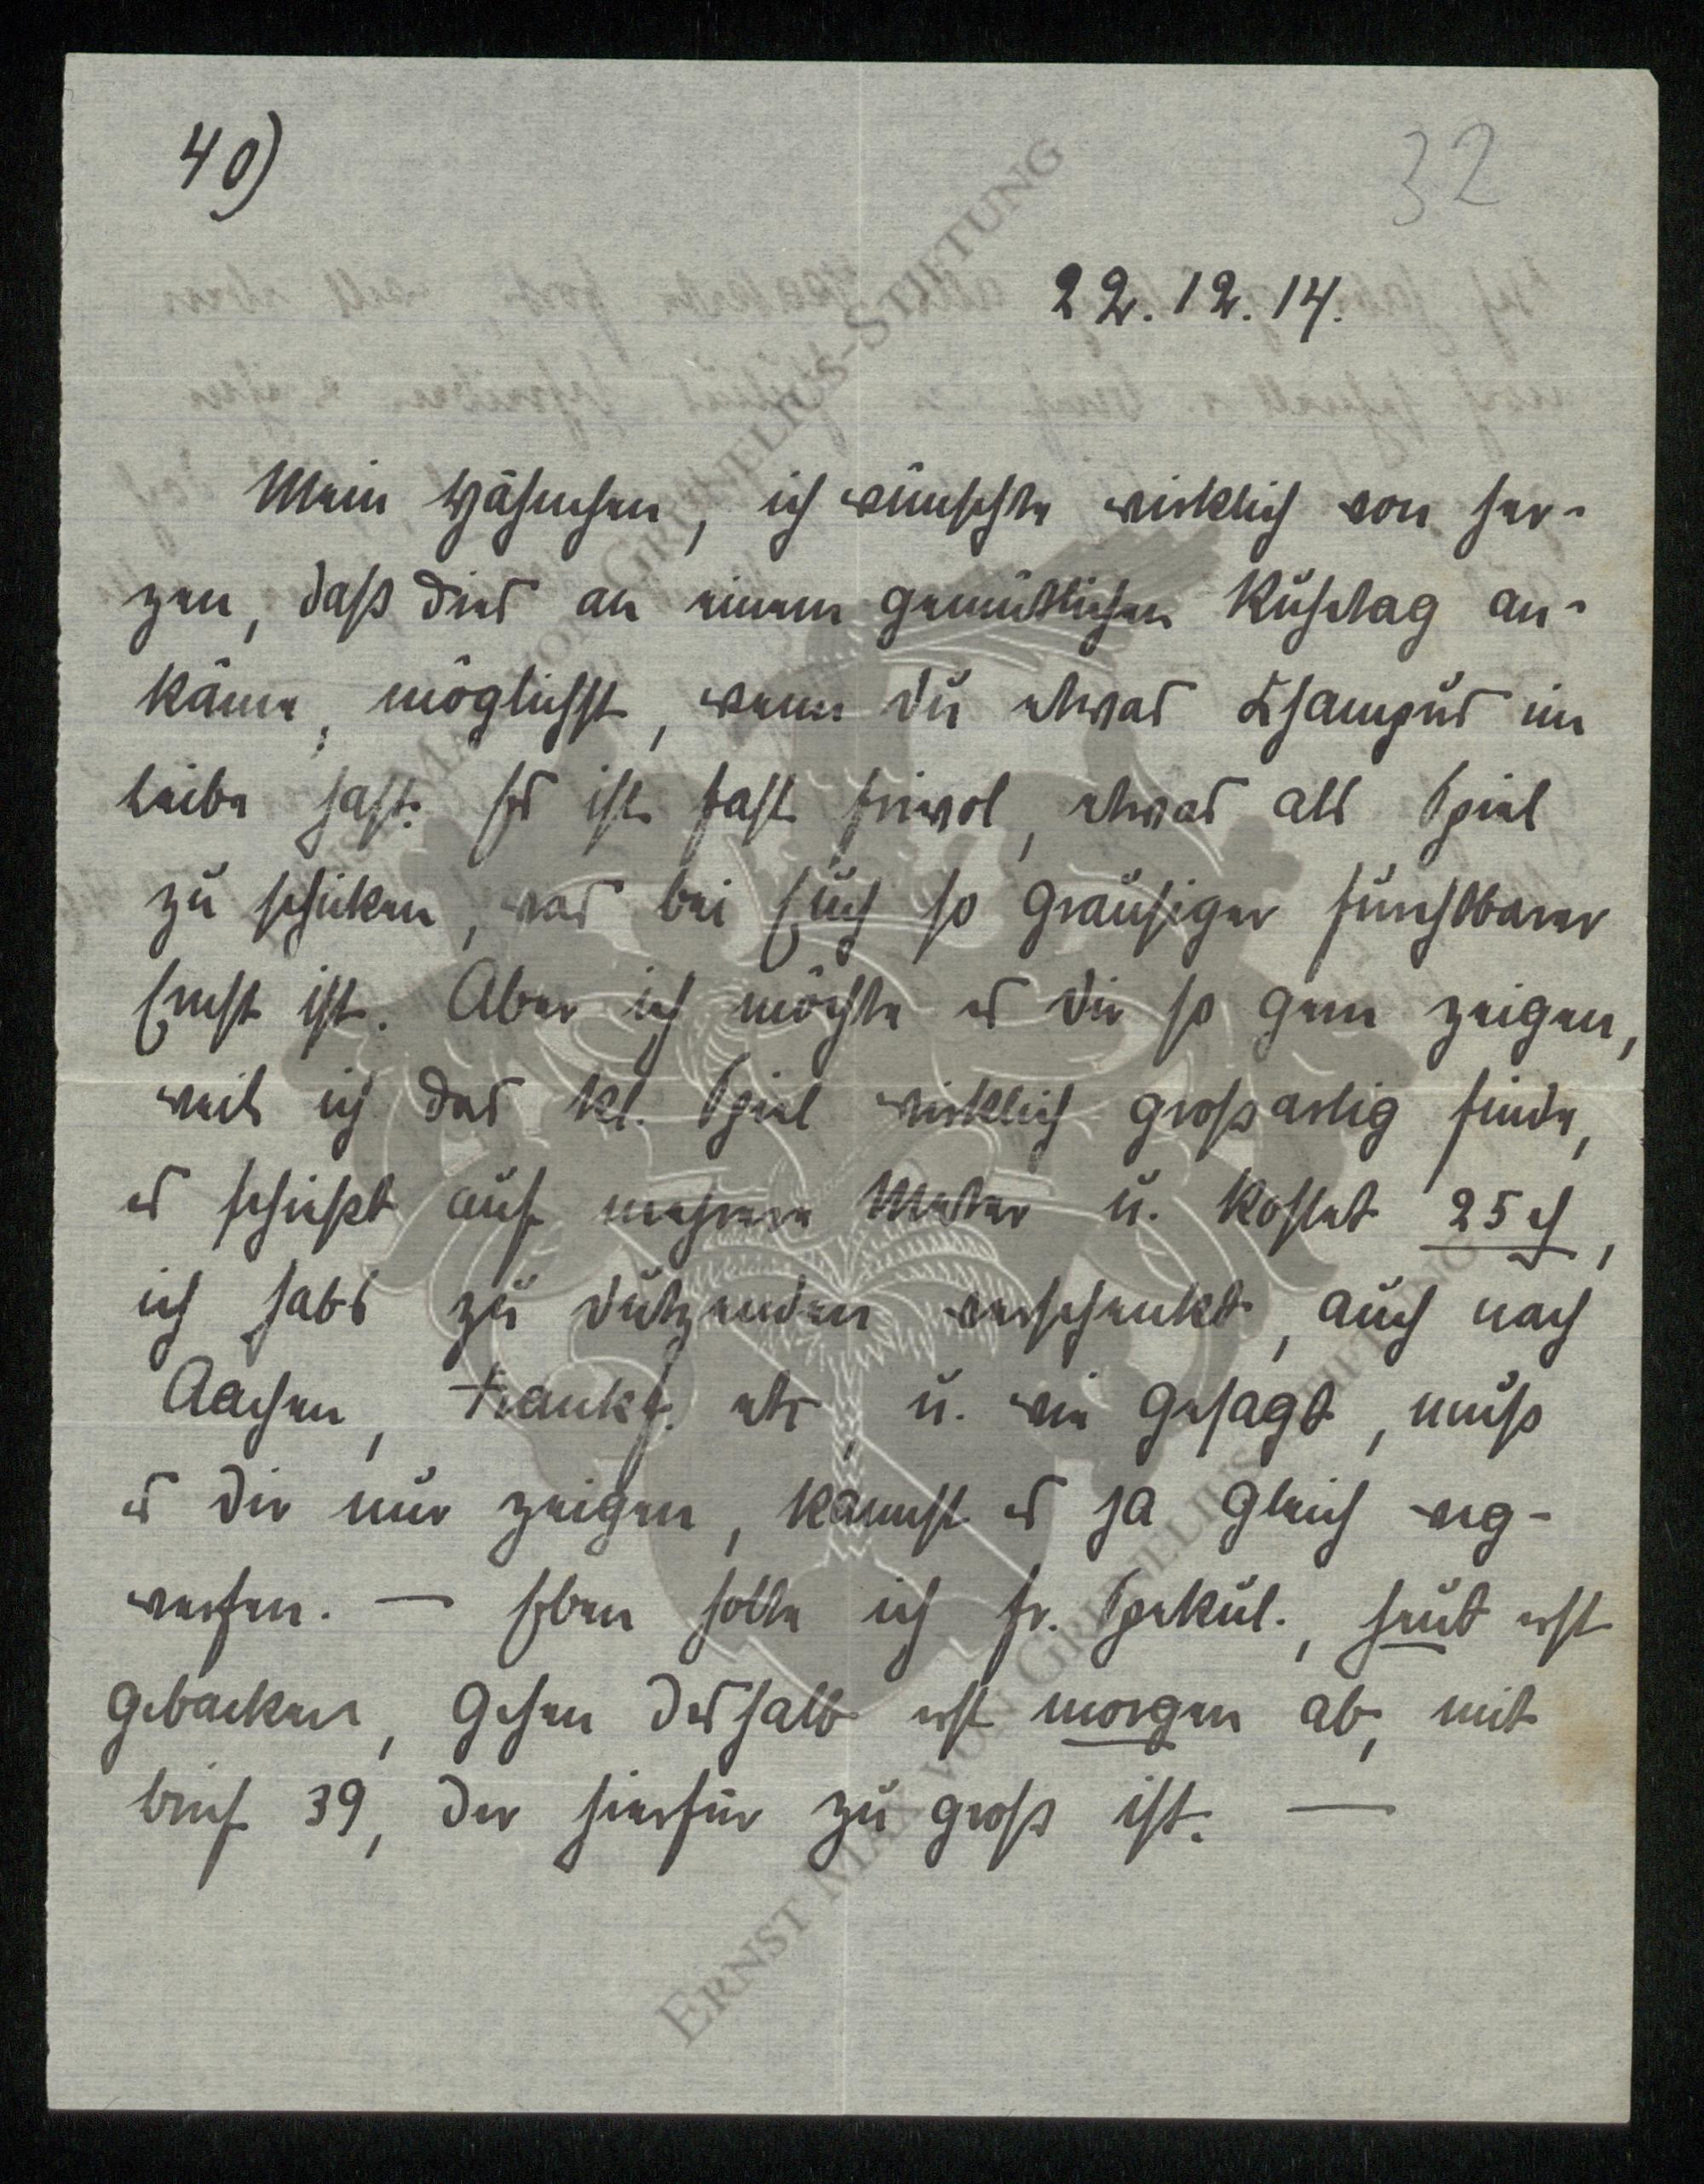 40)
32
22. 12. 14.
Mein Hähnchen, ich wünschte wirklich von Her-
zen, daß dies an einem gemütlichen Ruhetag an-
käme, möglichst, wenn du etwas Champus im
Leibe hast. Es ist fast frivol, etwas als Spiel
zu schicken, was bei Euch so grausiger furchtbarer
Ernst ist. Aber ich möchte es dir so gern zeigen,
weil ich das kl. Spiel wirklich großartig finde,
es schießt auf mehrere Meter u. kostet 25 ₰,
ich habs zu dutzenden verschenkt, auch nach
Aachen, Frankf. etc, u. wie gesagt, muß
es dir nur zeigen, kannst es ja gleich weg-
werfen. — Eben holte ich fr. Spekul., heut erst
gebacken, gehen deshalb erst morgen ab, mit
brief 39, der hierfür zu groß ist. —
ERNST MAX VON GRUNELIUS-STIFTUNG
ERNST MAX VON GRUNELIUS-STIFTUNG